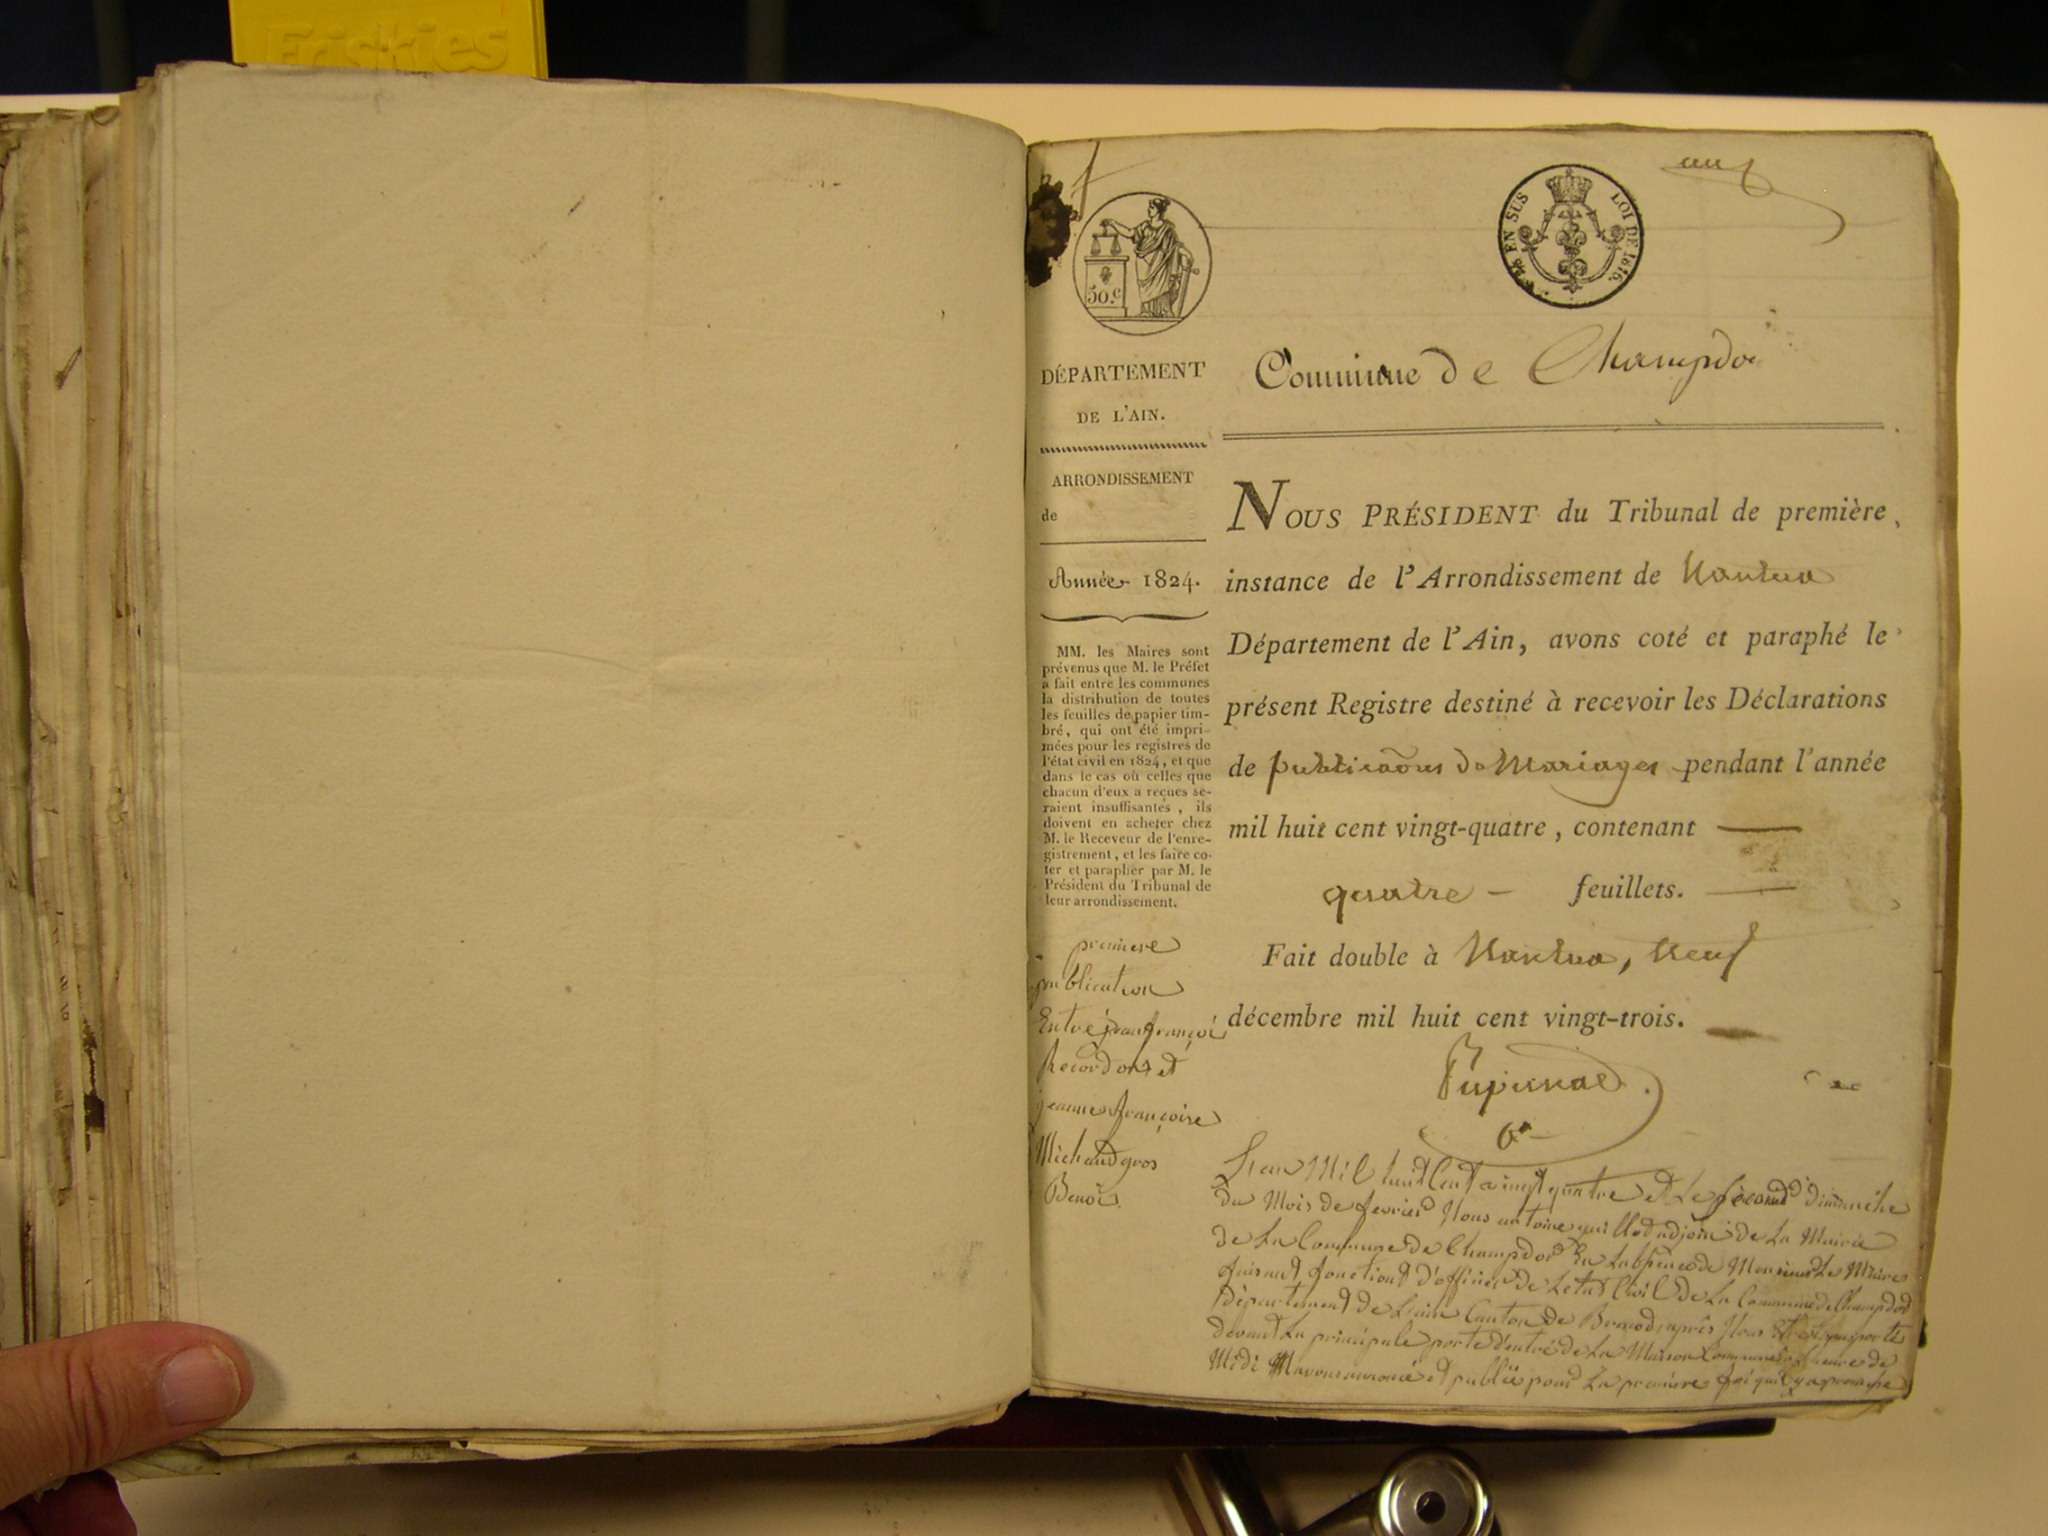 Friskies
50.c
EN SUS
LOI DE 1816.
DÉPARTEMENT
DE L'AIN.
ARRONDISSEMENT
de
Année 1824.
MM. les Maires sont
prévenus que M. le Préfet
a fait entre les communes
la distribution de toutes
les feuilles de papier tim-
bré, qui ont été impri-
mées pour les registres de
l'état civil en 1824, et que
dans le cas où celles que
chacun d'eux a reçues se-
raient insuffisantes, ils
doivent en acheter chez
M. le Receveur de l'enre-
gistrement, et les faire co-
ter et parapher par M. le
Président du Tribunal de
leur arrondissement.
premiere
publication
Entre jean françoi
Recordon et
jeanne françoise
Michaud gros
Benoi
Commune de Champdor
NOUS PRÉSIDENT du Tribunal de première
instance de l'Arrondissement de Nantua
Département de l'Ain, avons coté et paraphé le
présent Registre destiné à recevoir les Déclarations
de publicaõns de Mariages pendant l'année
mil huit cent vingt-quatre, contenant
quatre feuillets.
Fait double à Nantua, neuf
décembre mil huit cent vingt-trois.
L'ean Mil huit Cent vingt quatre et Le second dimanche
du Mois de fevrier Nous antoine adjoin de La Mairie
de La Commune de Champdor En Labsence de Monsieur Le Maire
faisant fonctions d'officier de Letat Civil de La Commune de Champdor
Département de L'ain Canton de Nous
devant La principale porte d'entré de La Maison Commune heure de
Midi avons annoncé et publié pour La premiere foi qu'il y a promesse